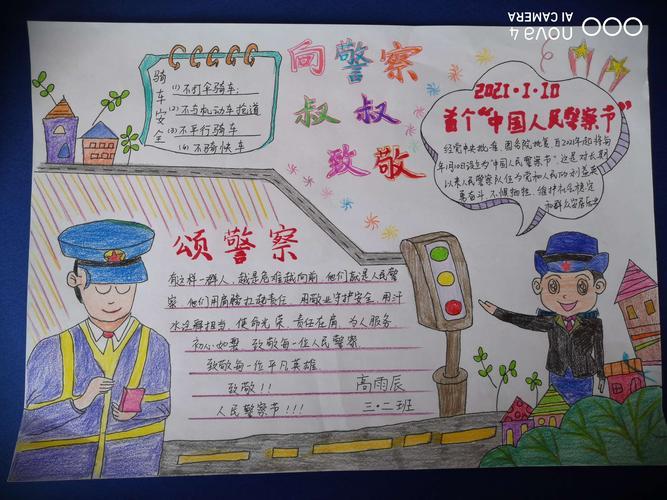 向警察
叔叔
致敬
骑车安全
(1)不打伞骑车;
(2)不与机动车抢道
(3)不平行骑车
(4)不骑快车
2021·1·10
首个“中国人民警察节”
经党中央批准、国务院批复 自2021年起将每
年1月10日设立为“中国人民警察节”.这是对长期
以来人民警察队伍为党和人民的利益英
勇奋斗.不惧牺牲.维护社会稳定
和群众安居乐业
颂警察
有这样一群人,越是危难越向前,他们就是人民警
察.他们用肩膀扛起责任 用敬业守护安全.用汗
水诠释担当.使命光荣.责任在肩.为人服务
初心如磐 致敬每一位人民警察
致敬每一位平凡英雄
致敬!!
人民警察节!!!
高雨辰
三·二班
nova 4
AI CAMERA